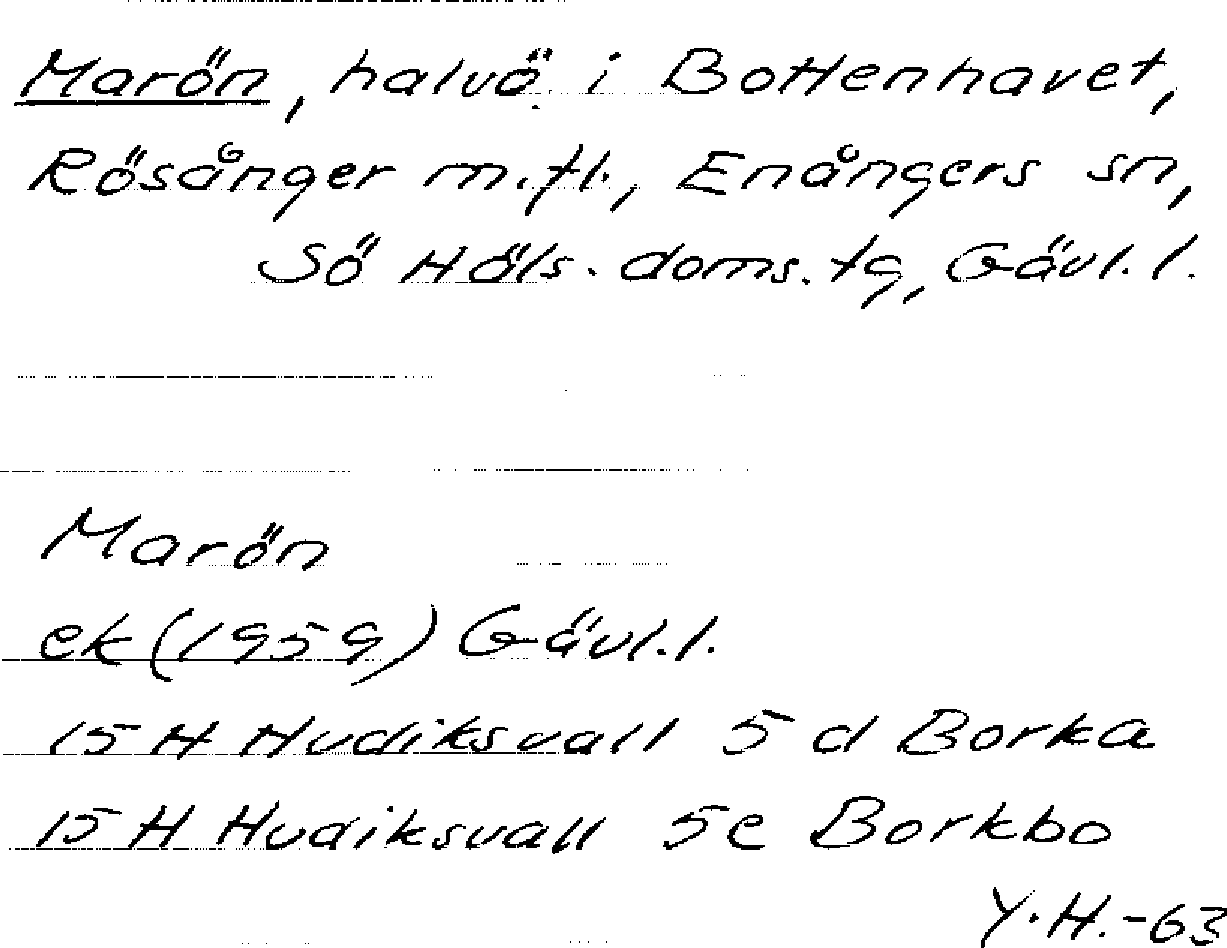 Marön, halvö i Bottenhavet,
Rösånger m.fl., Enångers sn,
Sö Häls. doms. tg, Gävl. l.
Marön
ek (1959) Gävl. l.
15 H Hudiksvall 5 d Borka
15 H Hudiksvall 5e Borkbo
Y.H.-63